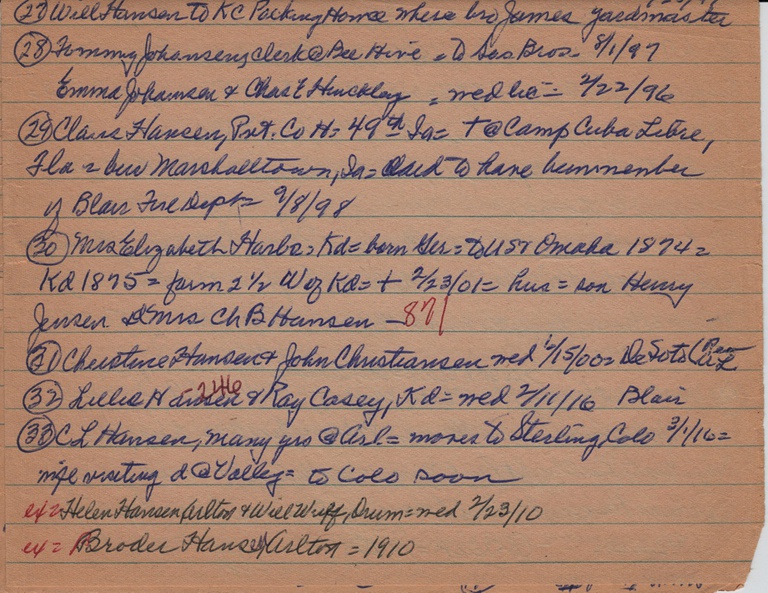 (27) Will Hansen to KC Packing House where bro James yardmaster
(28) Tommy Johansen, clerk @ Bee Hive = to Sas Bros 8/1/97
Emma Johansen & Chas E Hinckley = wed lic = 2/22/96
(29) Claus Hansen, Pvt. Co H = 49th Ia = + @ Camp Cuba Libre,
Fla = bur Marshalltown, Ia = said to have been member
of Blair Fire Dept = 9/8/98
(30) Mrs Elizabeth Harbs = Kd = born Ger = to US & Omaha 1874 =
Kd 1875 = farm 2 1/2 W of Kd = + 2/23/01 = hus = son Henry
Jensen d Mrs Ch B Hansen - 871
(31) Christine Hansen & John Christiansen wed 1/15/00 = DeSoto
(32) Lillie Hansen 246 & Ray Casey, Kd = wed 2/11/16 Blair
(33) C L Hansen, many yrs @ Arl = moves to Sterling, Colo 3/1/16 =
wife visiting d @ Valley = to Colo soon
ex = Helen Hansen, Arlton & Will Wulff, Drum = wed 2/23/10
ex = Broder Hansen, Arlton = 1910